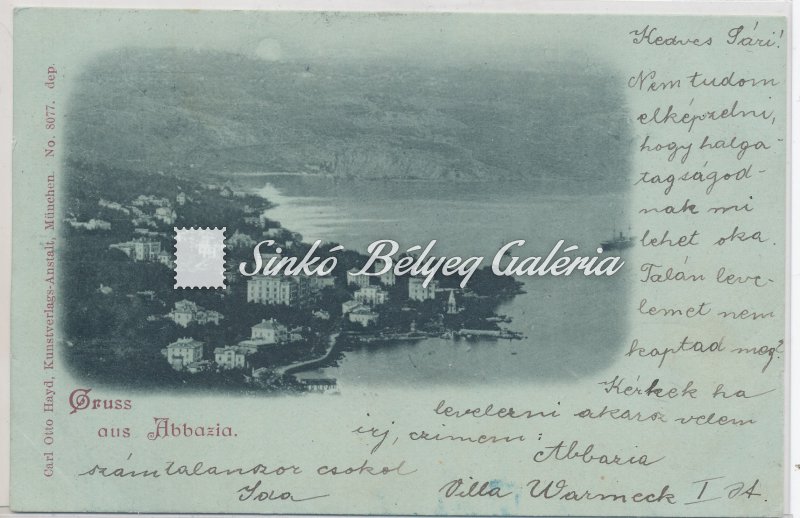 Kedves Sári!
Nem tudom
elképzelni,
hogy halga-
tagságod-
nak mi
lehet oka.
Talán leve-
lemet nem
kaptad meg?
Kérkek ha
levelezni akarsz velem
irj, czimem:
Abbazia
Villa Warmeck I St.
számtalanszor csokol
Ida
Gruss
aus Abbazia.
Carl Otto Hayd, Kunstverlags-Anstalt, München. No. 8077. dep.
Sinkó Bélyeg Galéria